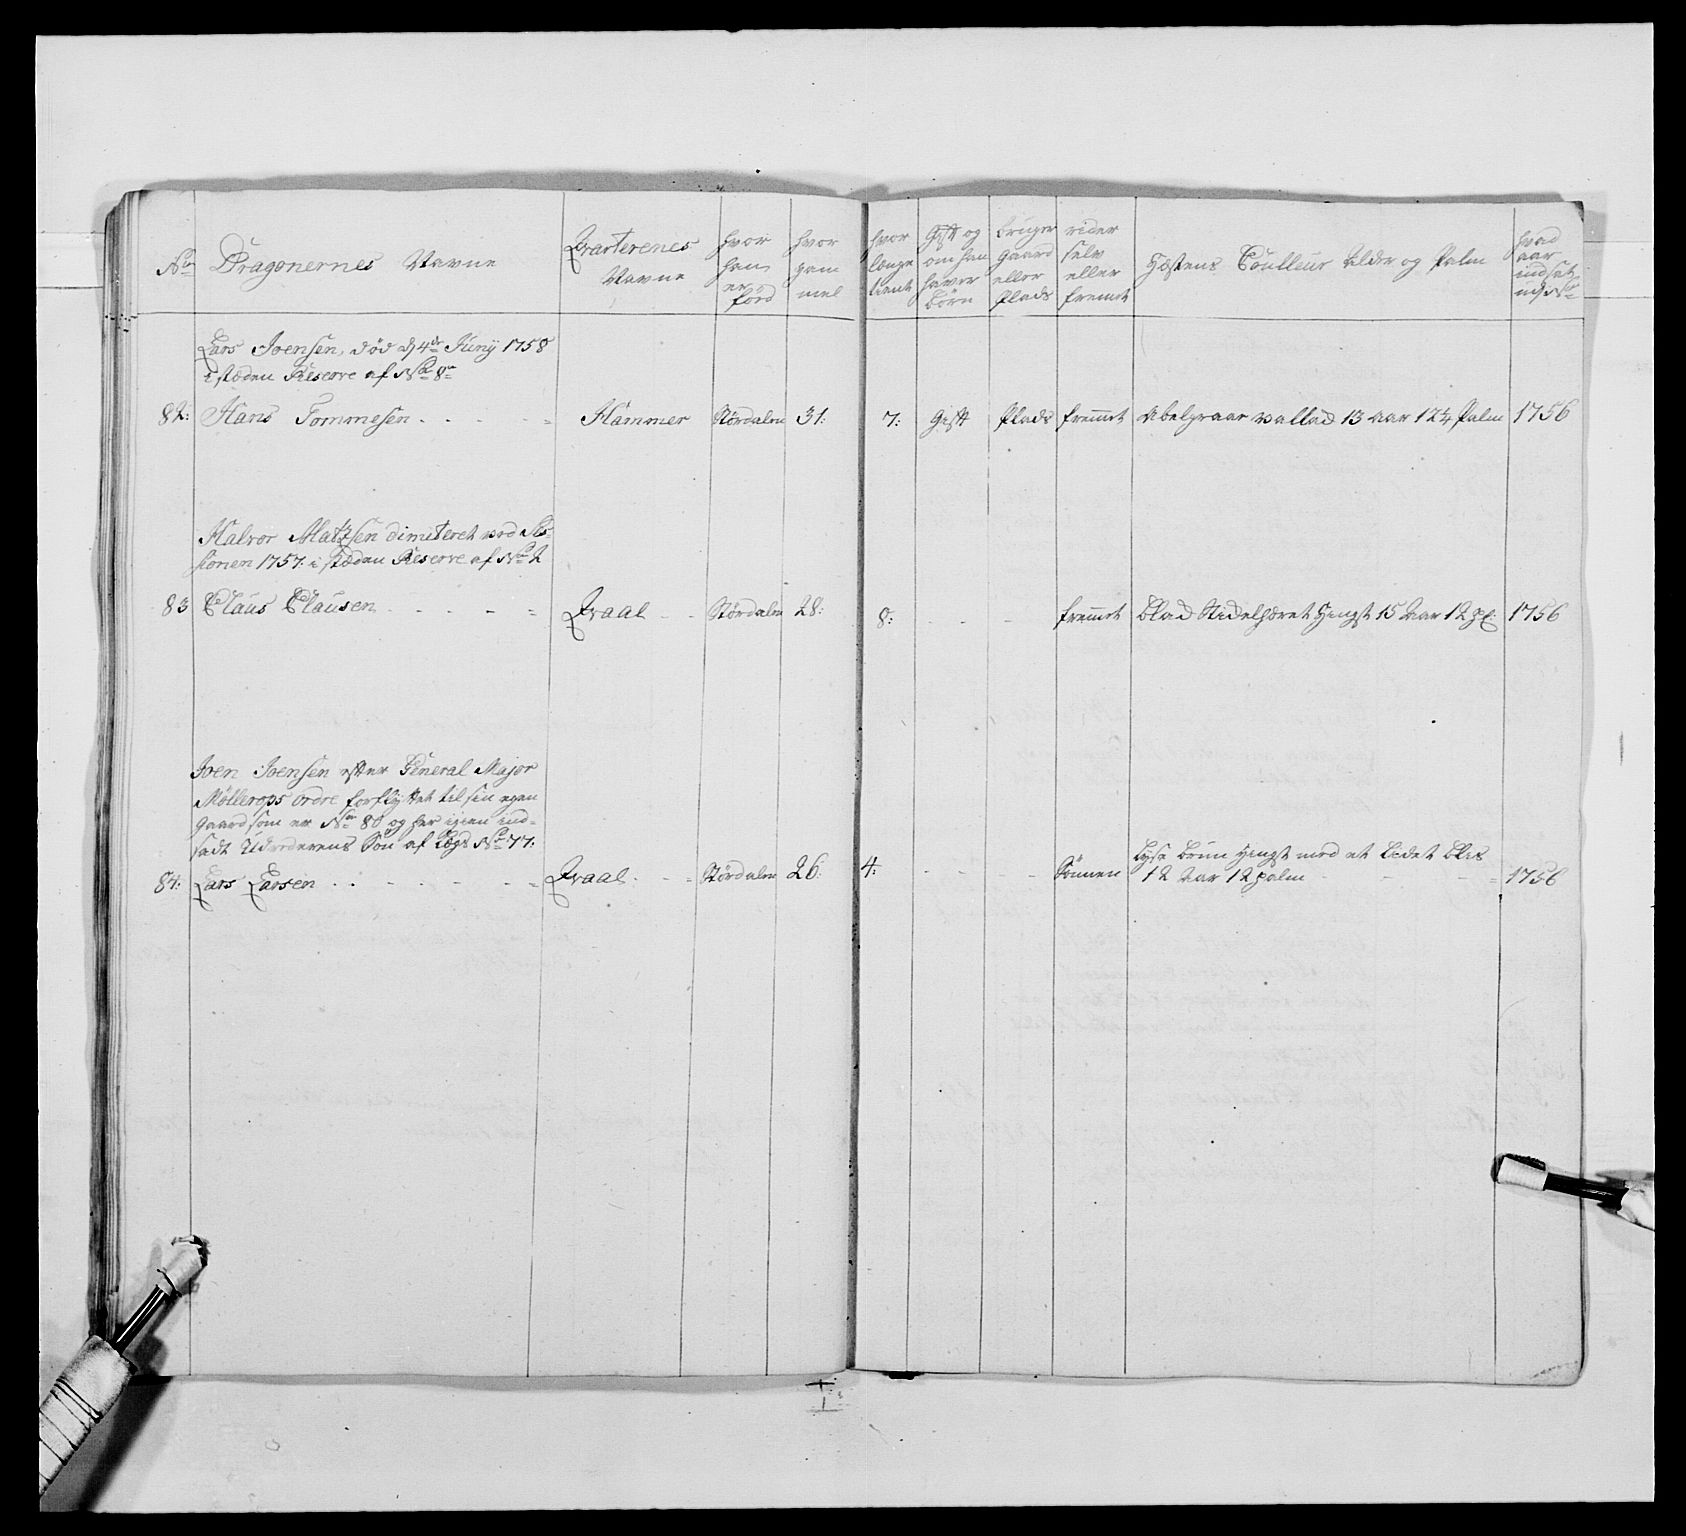 No
Dragonernes Navne
Qvarterenes
Navne
hvor
han
er
född
hvor
gam
mel
hvor
længe
tient
Gift og
om han
haver
Börn
bruger
Gaard
eller
Plads
rider
selv
eller
fremet
Hæstens Coulleur Alder og Palm
hvad
aar
indsat
Lars Joensen, död d 4de Juny 1758
i stæden Reserve af No 8
82: Hans Tommesen Hammer Stördalen 31: 7: Gift Plads fremet Abelgraae vallad 13 aar 12¼ Palm 1756
Halvor Matzsen dimiteret ved Ses-
sionen 1757: i stæden Reserve af No 2
83 Claus Clausen Qvaal Stördalen 28: 8: fremet blad Stidelhæret Hingst 15 aar 12 pl: 1756
Joen Joensen efter General Major
Möllerops ordre forflyttet til sin egen
Gaard som er No 80 og her igien ind-
sadt Udriderens Sön af Lægd No 77:
84: Lars Larsen Qvaal Stördalen 26: 4: Sönnen Lyse brun Hingst med et Lidet blis
12 aar 12 palm 1756